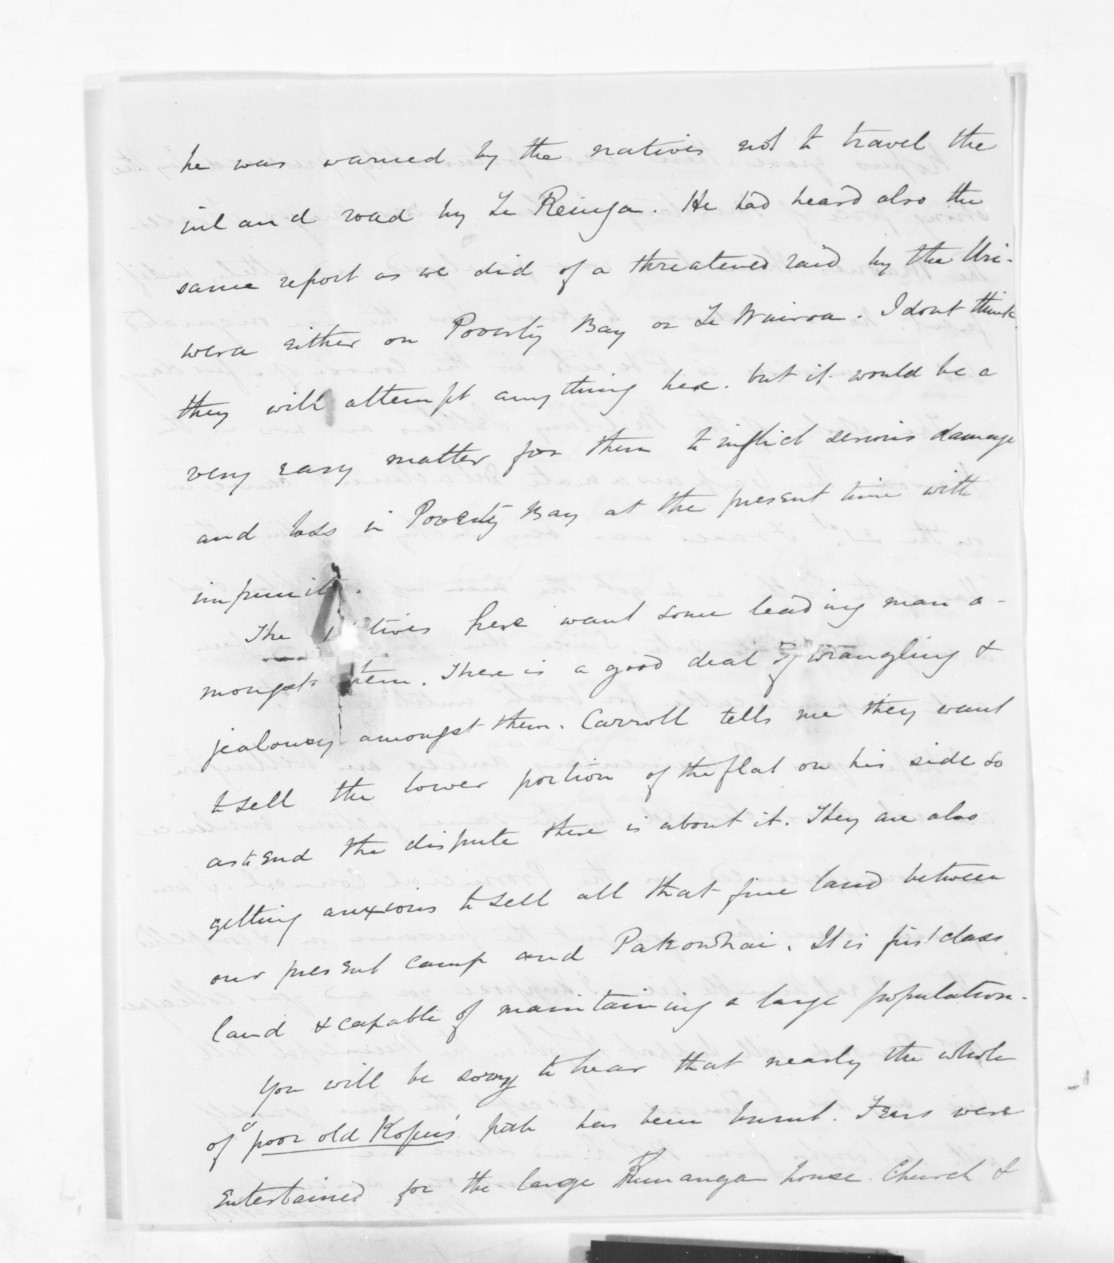 he was warned by the natives not to travel the
inland road by Te Reinga. He had heard also the
same report as we did of a threatened raid by the Uri-
wera either on Poverty Bay or Te Wairoa. I dont think
they will attempt anything here. but it would be a
very easy matter for them to inflict serious damage
and loss in Poverty Bay at the present time with
impunity.
The natives here want some leading man a-
mongst them. There is a good deal of wrangling &
jealousy amongst them. Carroll tells me they want
to sell the lower portion of the flat on his side so
as to end the dispute there is about it. They are also
getting anxious to sell all that fine land between
our present camp and Pakowhai. It is first class
land & capable of maintaining a large population.
You will be sorry to hear that nearly the whole
of "poor old Kopu's" pah has been burnt. Fears were
entertained for the large Runanga house Church &